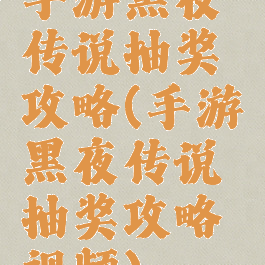 手游黑夜
传说抽奖
攻略(手游
黑夜传说
抽奖攻略
视频)